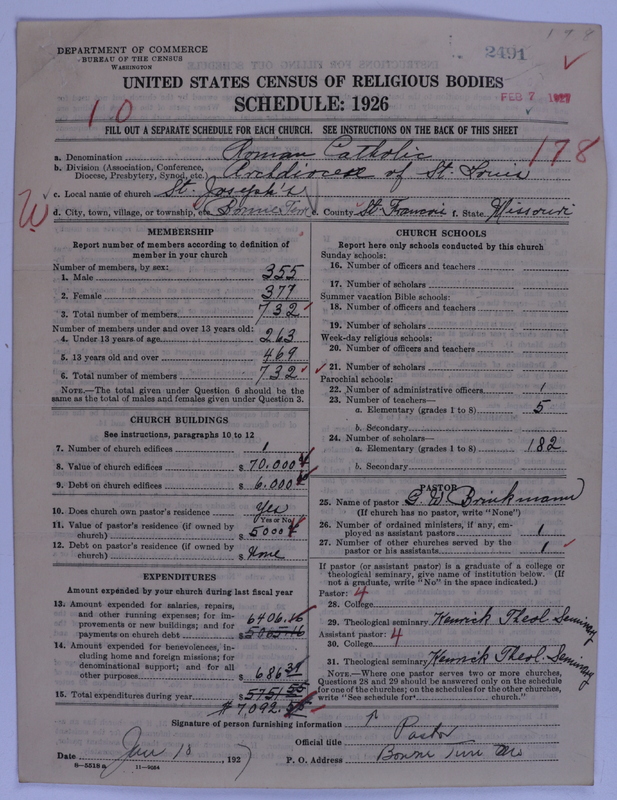 198
DEPARTMENT OF COMMERCE
BUREAU OF THE CENSUS
WASHINGTON
2491
UNITED STATES CENSUS OF RELIGIOUS BODIES
FEB 7 1927
SCHEDULE: 1926
10
FILL OUT A SEPARATE SCHEDULE FOR EACH CHURCH. SEE INSTRUCTIONS ON THE BACK OF THIS SHEET
178
a. Denomination Roman Catholic
b. Division (Association, Conference, Diocese, Presbytery, Synod, etc.) Archdiocese of St. Louis
c. Local name of church St. Joseph's
W
d. City, town, village, or township, etc. Bonne Terre e. County St. Francois f. State Missouri
MEMBERSHIP
Report number of members according to definition of
member in your church
Number of members, by sex:
1. Male 355
2. Female 377
3. Total number of members 732
Number of members under and over 13 years old:
4. Under 13 years of age 263
5. 13 years old and over 469
6. Total number of members 732
NOTE.—The total given under Question 6 should be the
same as the total of males and females given under Question 3.
CHURCH BUILDINGS
See instructions, paragraphs 10 to 12
7. Number of church edifices 1
8. Value of church edifices $ 70.000
9. Debt on church edifices $ 6.000
10. Does church own pastor's residence Yes
(Yes or No)
11. Value of pastor's residence (if owned by
church) $ 5000
12. Debt on pastor's residence (if owned by
church) $ None
EXPENDITURES
Amount expended by your church during last fiscal year
13. Amount expended for salaries, repairs,
and other running expenses; for im-
provements or new buildings; and for
payments on church debt $ 6406.16
14. Amount expended for benevolences, in-
cluding home and foreign missions; for
denominational support; and for all
other purposes $ 686.39
15. Total expenditures during year $ 5751.55
$ 7,092.
CHURCH SCHOOLS
Report here only schools conducted by this church
Sunday schools:
16. Number of officers and teachers
17. Number of scholars
Summer vacation Bible schools:
18. Number of officers and teachers
19. Number of scholars
Week-day religious schools:
20. Number of officers and teachers
21. Number of scholars
Parochial schools:
22. Number of administrative officers 1
23. Number of teachers—
a. Elementary (grades 1 to 8) 5
b. Secondary
24. Number of scholars—
a. Elementary (grades 1 to 8) 182
b. Secondary
PASTOR
25. Name of pastor C. W. Brinkmann
(If church has no pastor, write "None")
26. Number of ordained ministers, if any, em-
ployed as assistant pastors 1
27. Number of other churches served by the
pastor or his assistants 1
If pastor (or assistant pastor) is a graduate of a college or
theological seminary, give name of institution below. (If
not a graduate, write "No" in the space indicated.)
Pastor: 4
28. College
29. Theological seminary Kenrick Theol Seminary
Assistant pastor: 4
30. College
31. Theological seminary Kenrick Theol. Seminary
NOTE.—Where one pastor serves two or more churches,
Questions 28 and 29 should be answered only on the schedule
for one of the churches; on the schedules for the other churches,
write "See schedule for church."
Signature of person furnishing information
Official title Pastor
Date Jan 10, 1927 P. O. Address Bonne Terre Mo
8-5518 a 11-9084